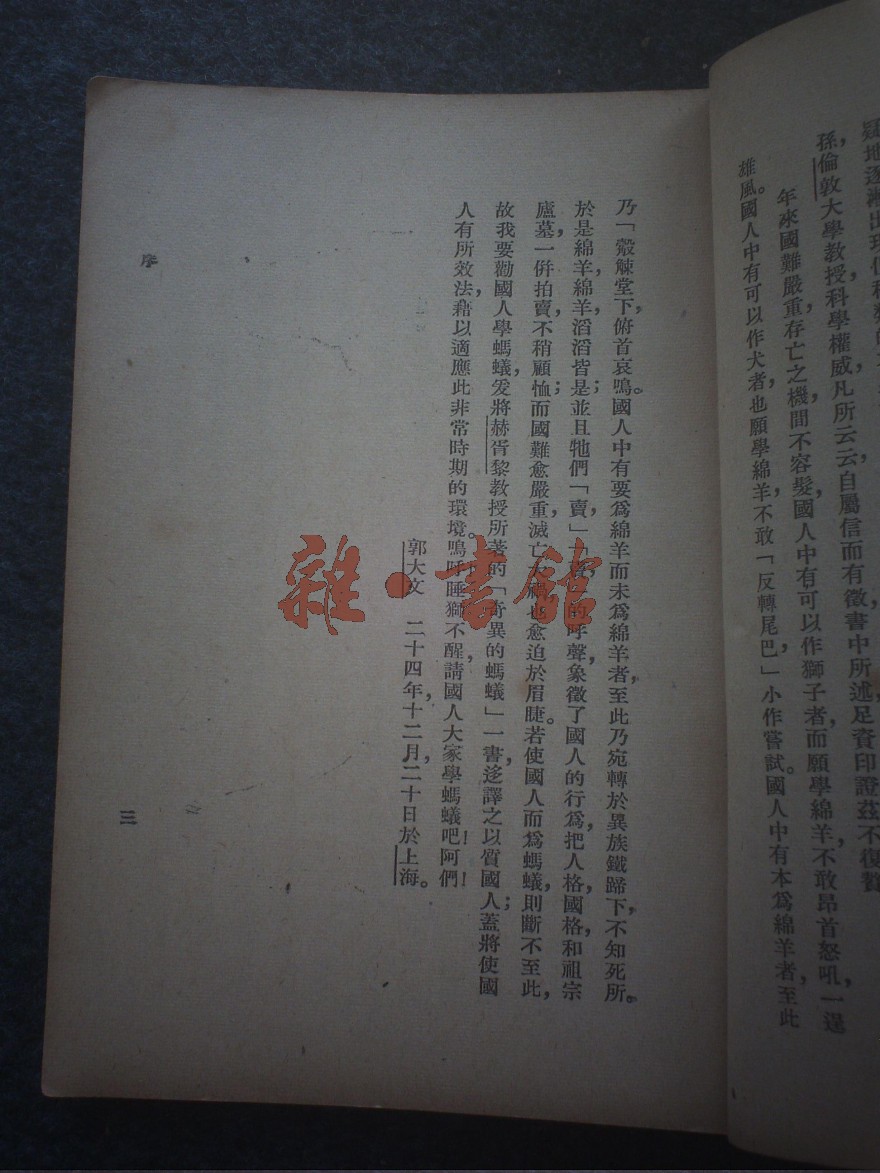 孫，倫敦大學教授科學權威，凡所云云自屬信而有徵書中所述，足資印證茲不復贅
年來國難嚴重存亡之機間不容髮，國人中有可以作獅子者，而願學綿羊不敢昂首怒吼，一逞
雄風。國人中有可以作犬者也願學綿羊，不敢「反轉尾巴」小作嘗試。國人中有本爲綿羊者，至此
乃「觳觫堂下，俯首哀鳴。國人中有要爲綿羊而未爲綿羊者，至此乃宛轉於異族鐵蹄下，不知死所。
於是綿羊，綿羊，滔滔皆是；並且牠們「賣」「賣」的呼聲，象徵了國人的行爲，把人格國格，和祖宗
廬墓，一併拍賣，不稍顧恤；而國難愈嚴重，滅亡大禍也愈迫於眉睫。若使國人而爲螞蟻，則斷不至此，
故我要勸國人學螞蟻，爰將赫胥黎教授所著的「奇異的螞蟻」一書，迻譯之以質國人；蓋將使國
人有所效法，藉以適應此非常時期的環境。嗚呼！睡獅不醒，請國人大家學螞蟻吧！阿們！
郭大文　二十四年，十二月，二十日於上海。
序
三
雜·書館